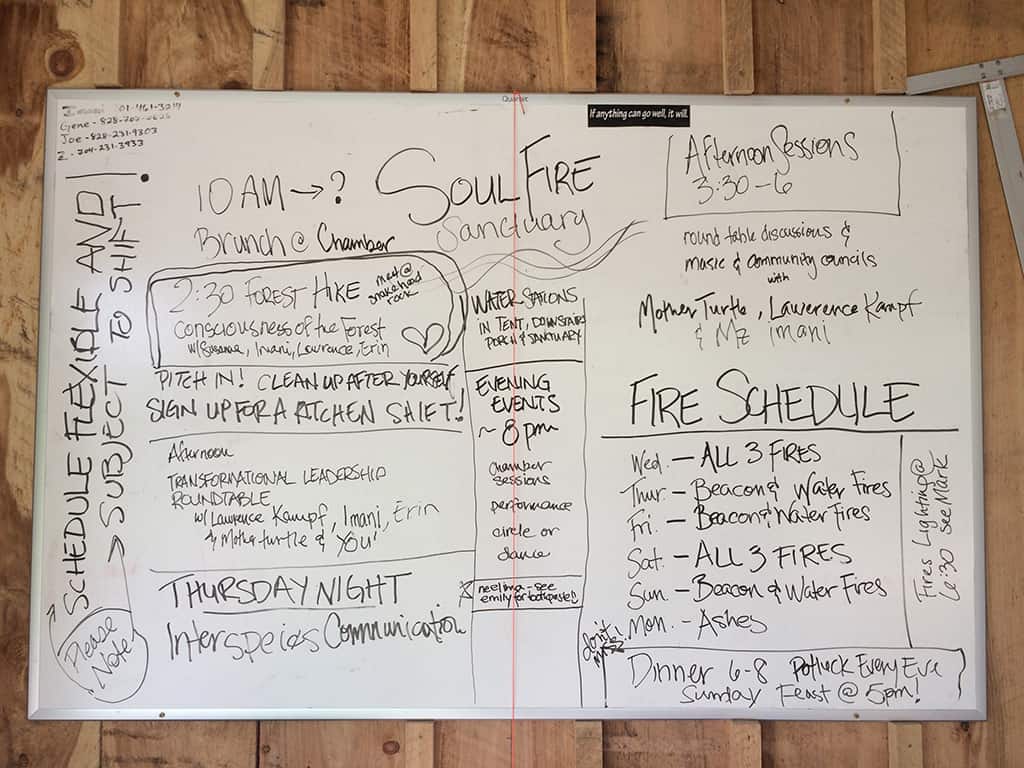 Imani 01-461-3217
Gene - 828-702-
Joe - 828-231-9303
Z. 704-231-3933
Quartet
If anything can go well, it will.
SCHEDULE FLEXIBLE AND
SUBJECT TO SHIFT!
Please
Note!
10 AM → ?
Brunch @ Chamber
SOUL FIRE
Sanctuary
2:30 FOREST HIKE
meet @
snakehead
rock
Consciousness of the Forest
w/ Imani, Lawrence, Erin
PITCH IN! CLEAN UP AFTER YOURSELF,
SIGN UP FOR A KITCHEN SHIFT!
Afternoon
TRANSFORMATIONAL LEADERSHIP
ROUNDTABLE
w/ Lawrence Kampf, Imani, Erin
& Mother turtle & YOU!
THURSDAY NIGHT
Interspeices Communication
WATER STATIONS
IN TENT, DOWNSTAIRS
PORCH & SANCTUARY
EVENING
EVENTS
~ 8 pm
chamber
sessions
performance
circle or
dance
- see
emily for toothpaste!
Afternoon Sessions
3:30 - 6
round table discussions &
music & community councils
with
Mother Turtle, Lawerence Kampf
& Mz Imani
FIRE SCHEDULE
Wed. - ALL 3 FIRES
Thur - Beacon & Water Fires
Fri - Beacon & Water Fires
Sat. - ALL 3 FIRES
Sun - Beacon & Water Fires
Mon. - Ashes
Fires Lighting @
6:30 see Mark
don't
miss!
Dinner 6-8 Potluck Every Eve
Sunday Feast @ 5pm!